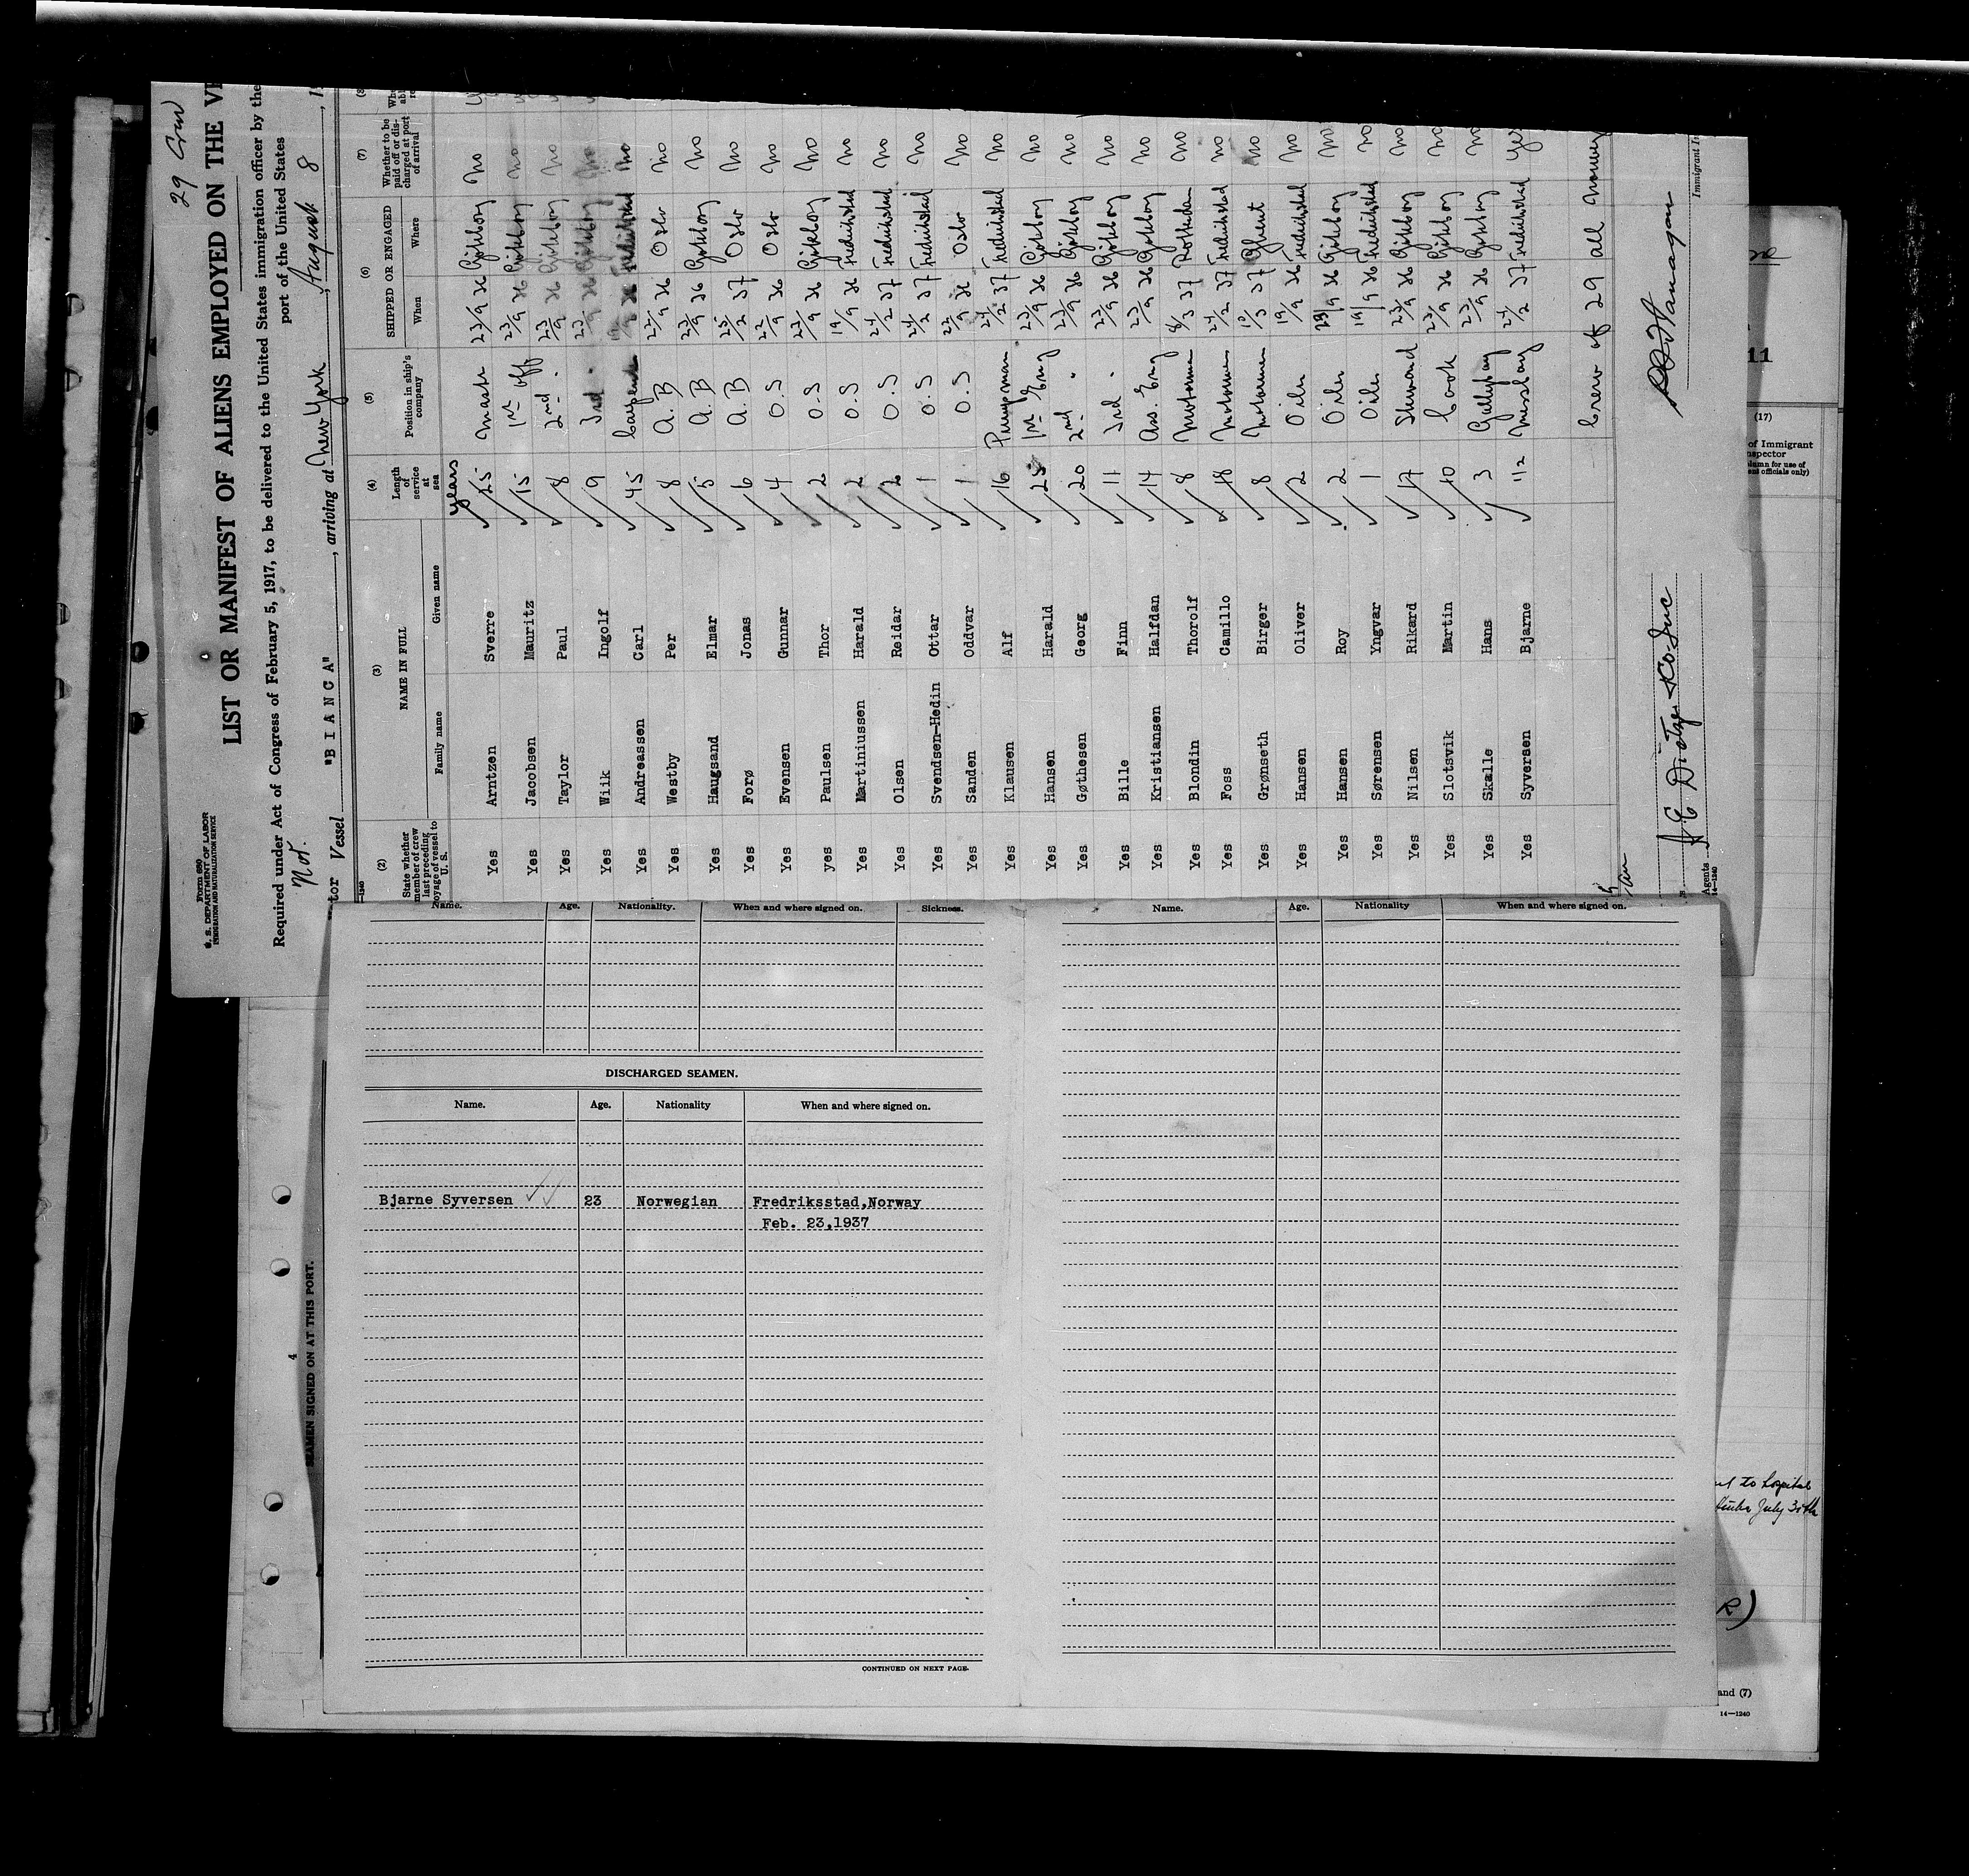 29 Crew
LIST OR MANIFEST OF ALIENS EMPLOYED ON THE VE
Form 680
U. S. DEPARTMENT OF LABOR
IMMIGRATION AND NATURALIZATION SERVICE
Required under Act of Congress of February 5, 1917, to be delivered to the United States immigration officer by the
port of the United States
Nor.
tor Vessel "B I A N C A" , arriving at New York , August 8 , 1
14-1240
(2) (3) (4) (5) (6) (7) (8
State whether member of crew last preceding voyage of vessel to U. S. NAME IN FULL Length of service at sea Position in ship's company SHIPPED OR ENGAGED Whether to be paid off or discharged at port of arrival
Family name Given name When Where
Years
Yes Arntzen Sverre 25 Master 23/9 36 Göteborg no
Yes Jacobsen Mauritz 15 1st off 23/9 36 Göteborg no
Yes Taylor Paul 8 2nd . 23/9 36 Göteborg no
Yes Wiik Ingolf 9 3rd . 23/9 36 Göteborg no
Yes Andreassen Carl 45 Carpenter 19/9 36 Fredrikstad no
Yes Westby Per 8 A.B 22/9 36 Oslo no
Yes Haugsand Elmar 5 A.B 23/9 36 Göteborg no
Yes Forø Jonas 6 A.B 25/2 37 Oslo no
Yes Evensen Gunnar 4 O.S 22/9 36 Oslo no
yes Paulsen Thor 2 O.S 23/9 36 Göteborg no
Yes Martiniussen Harald 2 O.S 19/9 36 Fredrikstad no
Yes Olsen Reidar 2 O.S 24/2 37 Fredrikstad no
Yes Svendsen-Hedin Ottar 1 O.S 24/2 37 Fredrikstad no
Yes Sanden Oddvar 1 O.S 22/9 36 Oslo no
Yes Klausen Alf 16 Pumpman 24/2 37 Fredrikstad no
Yes Hansen Harald 25 1st Eng 23/9 36 Göteborg no
Yes Gøthesen Georg 20 2nd " 23/9 36 Göteborg no
Yes Bille Finn 11 3rd . 23/9 36 Göteborg no
Yes Kristiansen Halfdan 14 Ass. Eng 23/9 36 Göteborg no
Yes Blondin Thorolf 8 Motorman 8/3 37 Rotterdam no
Yes Foss Camillo 18 Motorman 24/2 37 Fredrikstad no
Yes Grønseth Birger 8 Motorman 10/3 37 Ghent no
Yes Hansen Oliver 2 Oiler 19/9 36 Fredrikstad no
Yes Hansen Roy 2 Oiler 23/9 36 Göteborg no
Yes Sørensen Yngvar 1 Oiler 19/9 36 Fredrikstad no
Yes Nilsen Rikard 17 Steward 23/9 36 Göteborg no
Yes Slotsvik Martin 10 Cook 23/9 36 Göteborg no
Yes Skælle Hans 3 Galleyboy 23/9 36 Göteborg no
Yes Syversen Bjarne 1 1/2 Messboy 24/2 37 Fredrikstad Yes
Crew of 29 all
Immigrant In
Agents
14-1240
Name. Age. Nationality. When and where signed on. Sickness.
DISCHARGED SEAMEN.
Name. Age. Nationality When and where signed on.
Bjarne Syversen 23 Norwegian Fredriksstad,Norway
Feb. 23,1937
CONTINUED ON NEXT PAGE.
Name. Age. Nationality When and where signed on.
4
SEAMEN SIGNED ON AT THIS PORT.
11
(17)
of Immigrant
nspector
lumn for use of
ent officials only)
to hospital
July 30th
R)
and (7)
14—1240